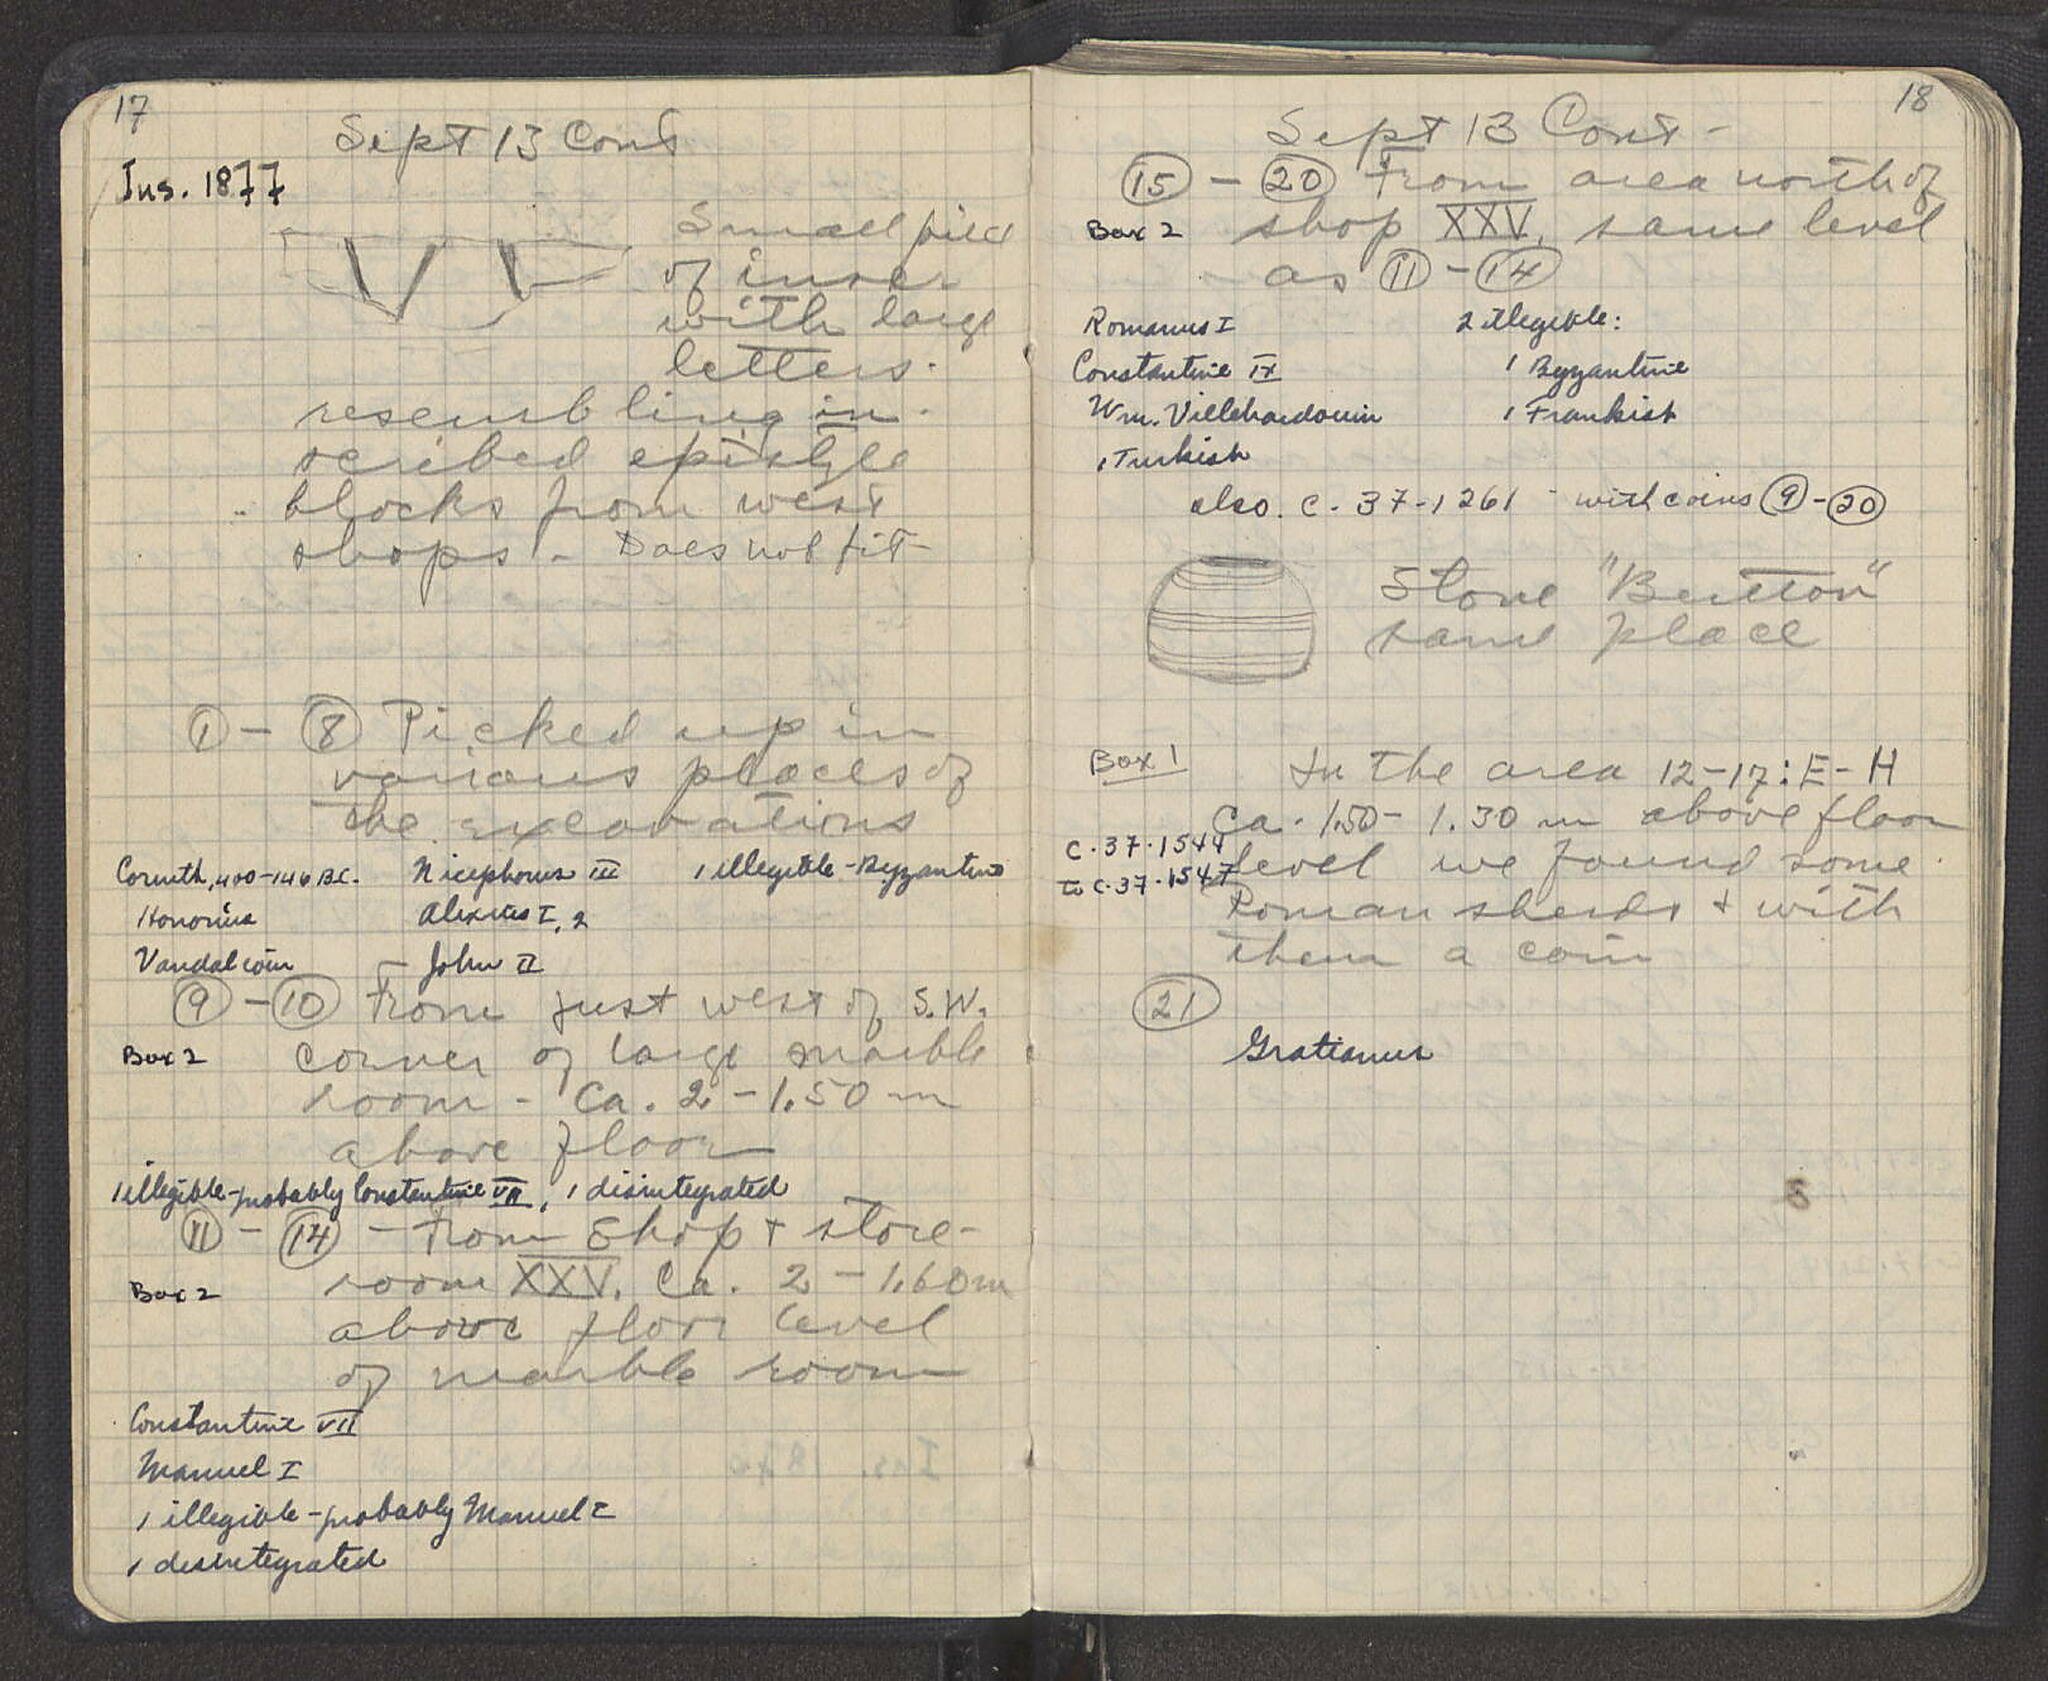 17
Sept 13 Cont
Ins. 1877
Small piece
of inscr
with large
letters.
resembling in-
scribed epistyle
blocks from west
shops - Does not fit
① - ⑧ Picked up in
various places of
the excavations
Corinth, 400-146 B.C. Nicephorus III 1 illegible - Byzantine
Honorius Alexius I, 2
Vandal coin John II
⑨ - ⑩ From just west of S.W.
Box 2 corner of large marble
room - Ca. 2 - 1.50 m
above floor
1 illegible - probably Constantine VII, 1 disintegrated
⑪ - ⑭ - From Shop + store-
Box 2 room XXV. Ca. 2 - 1.60 m
above floor level
of marble room
Constantine VII
Manuel I
1 illegible - probably Manuel I
1 disintegrated
18
Sept 13 Cont -
⑮ - ⑳ From area north of
Box 2 shop XXV, same level
as ⑪ - ⑭
Romanus I 2 illegible:
Constantine IX 1 Byzantine
Wm. Villehardouin 1 Frankish
1 Turkish
also. C. 37-1261 - with coins ⑨ - ⑳
Stone "Button"
same place
Box 1 In the area 12-17: E-H
Ca. 1.50 - 1.30 m above floor
C.37.1544 level we found some
to C.37.1547 Roman sherds + with
them a coin
㉑
Gratianus